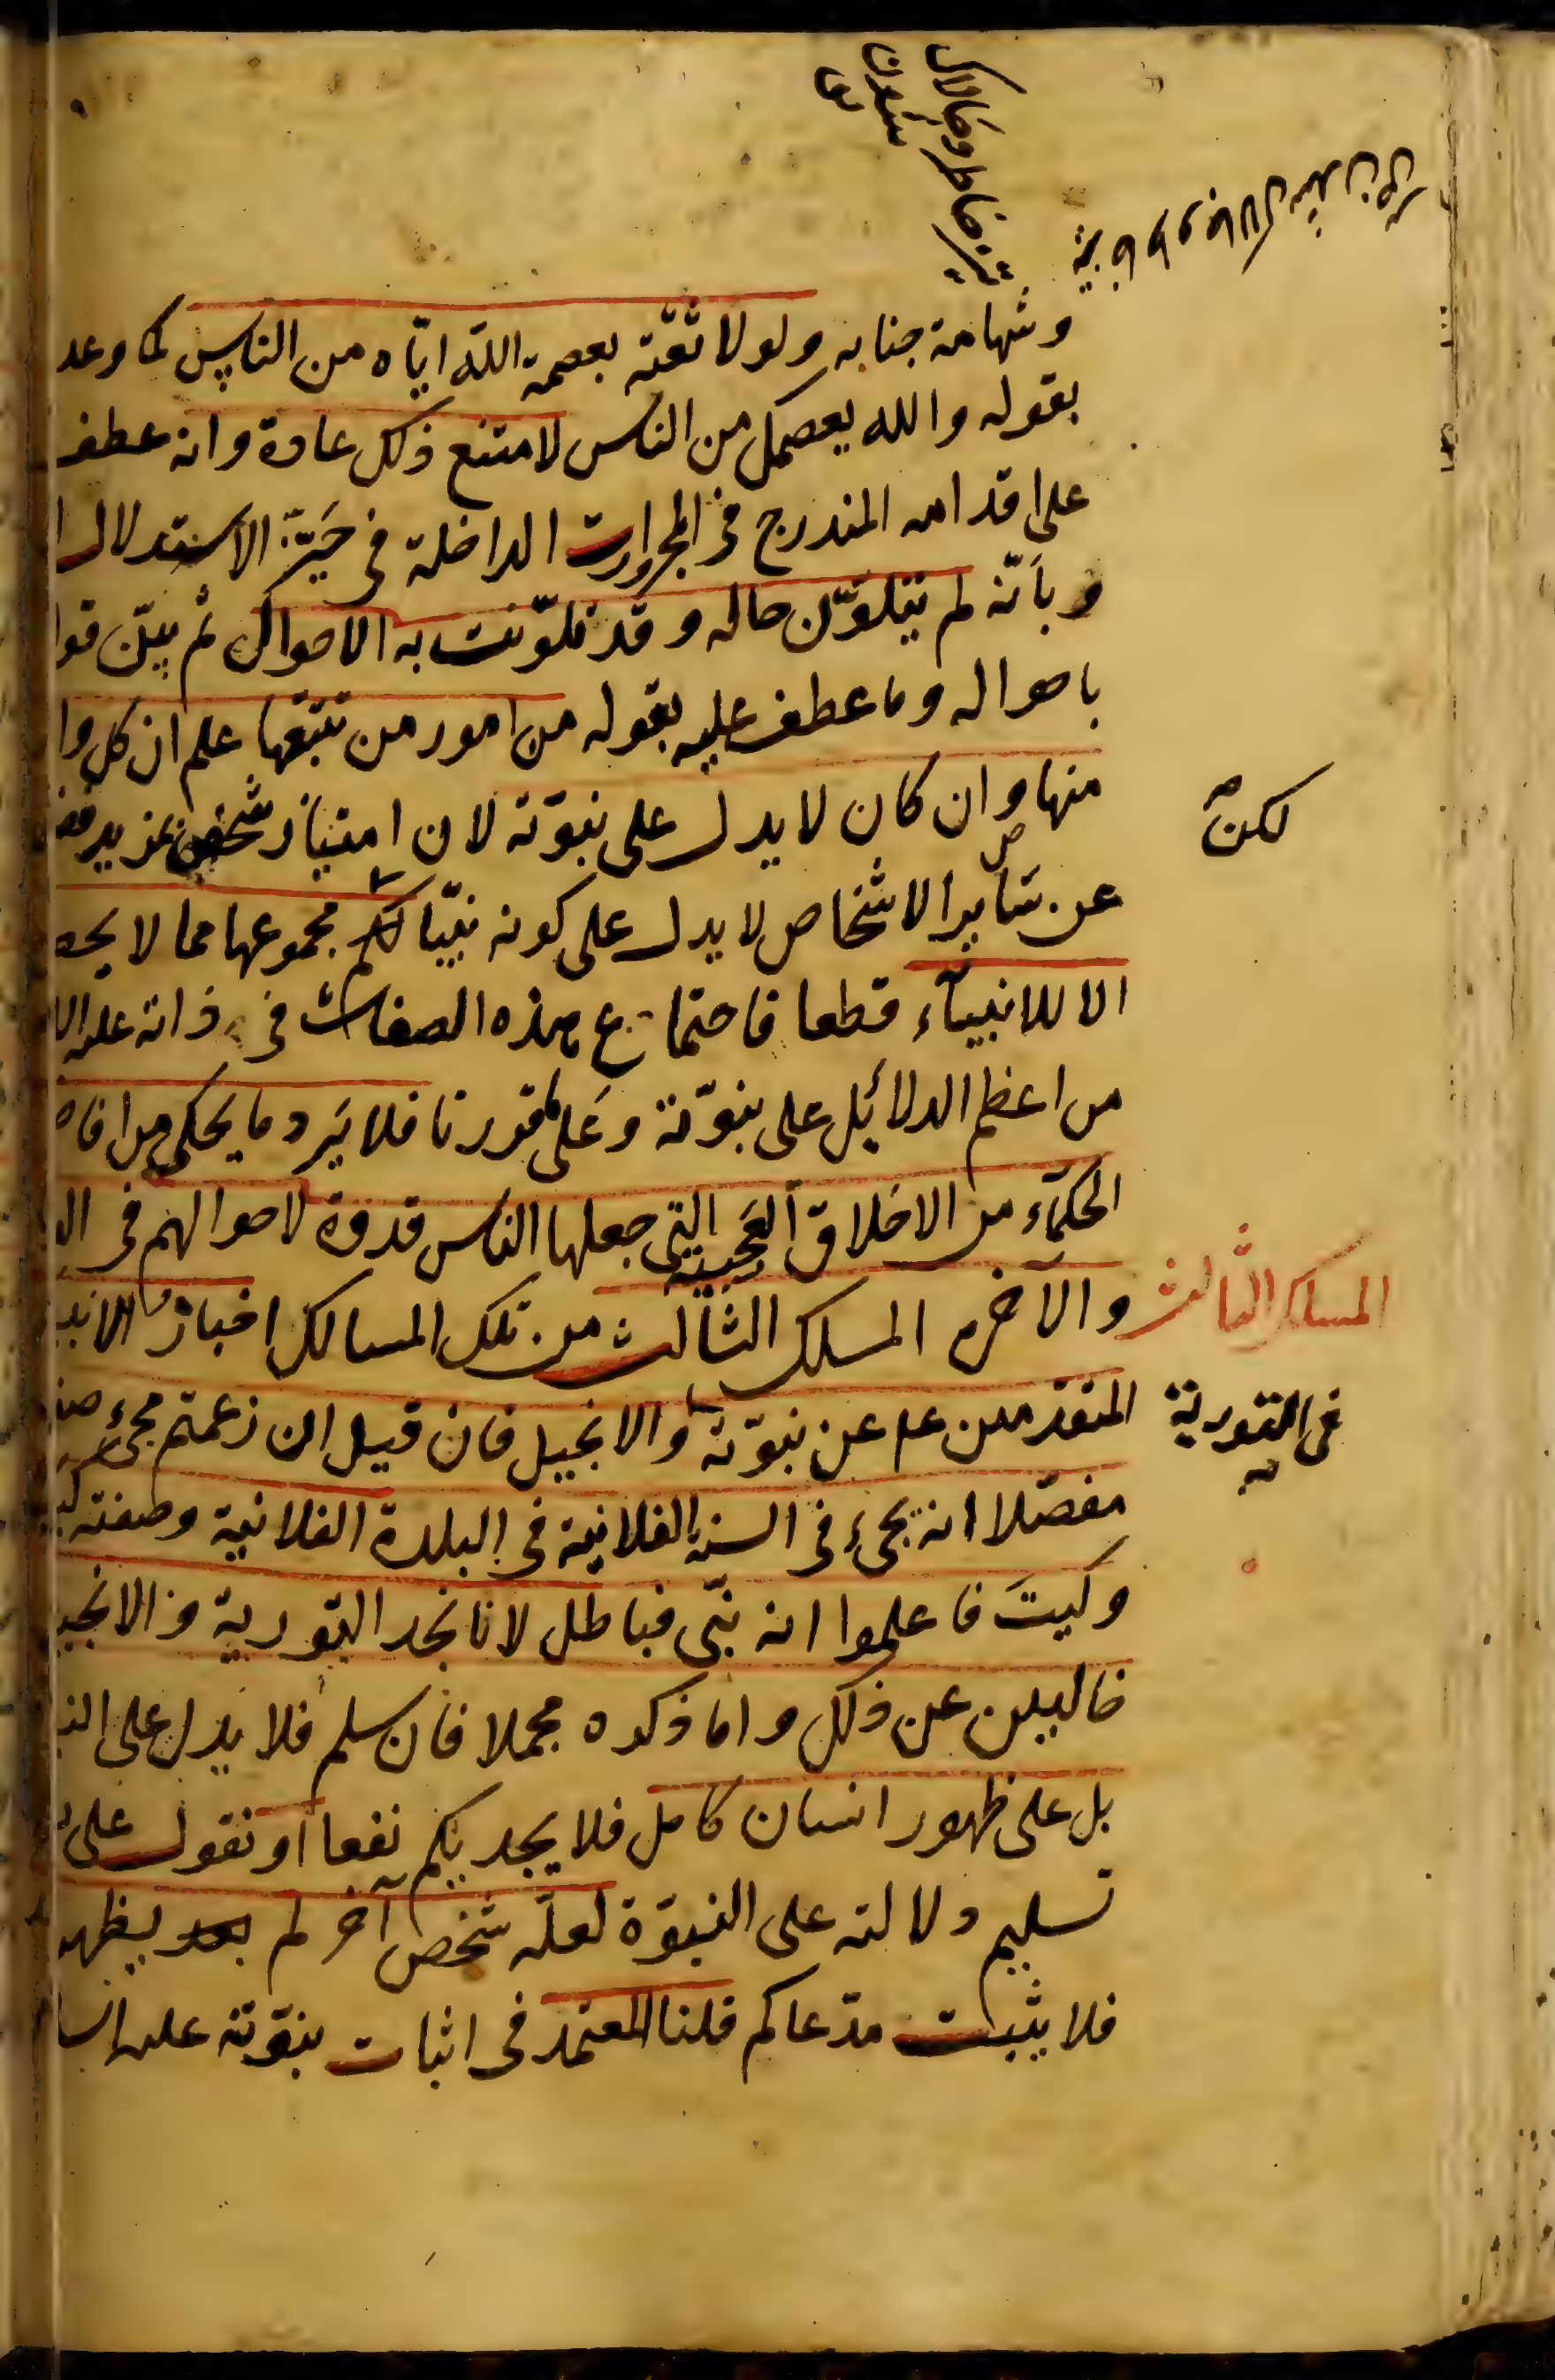 وشهامة جنابه ولولا ثقته بعصمة الله اياه من الناس كما وعد
بقوله والله يعصمك من الناس لامتنع ذلك عادة وانه عطف
على اقدامه المندرج فى المجرورات الداخلة فى حيّز الاستدلال
وبأنّه لم يتلوّن حاله وقد تلوّنت به الاحوال ثم بيّن
باحواله وما عطف عليه بقوله من امور من تتبّعها علم ان كل
منها وان كان لا يدل على نبوّته لان امتياز شخص بمزيد
عن سَاير الاشخاص لا يدل على كونه نبيّا مجموعها مما لا
لكن صح
الا للانبيآء قطعا فاجتماع هذه الصفات فى ذاته عليه
من اعظم الدلائل على نبوّته وعَلى ما قررنا فلا يَرد ما يحكى من
الحكمآء من الاخلاق العَجيبة التى جعلها الناس قدوة لاحوالهم فى
والآخره المسلك الثالث من تلك المسالك اخبار
المسلك الثالث
المتقدمين عليه عن نبوّته والانجيل فان قيل ان زعمتم مجىء
فى التورية
مفصّلا انه يجىء فى السنة الفلانية فى البلدة الفلانية وصفته
وكيتَ فاعلموا انه نبّى فباطل لانا نجد التورية والانجيل
خاليين عن ذلك واما ذكره مجملا فان سلم فلا يدل على
بل على ظهور انسان كامل فلا يجديكم نفعا او نقول على
تسليم دلالته على النبوّة لعلّه شخص آخر لم يظهر
فلا يثبت مدّعاكم قلنا المعتمد فى اثبات نبوّته عليه